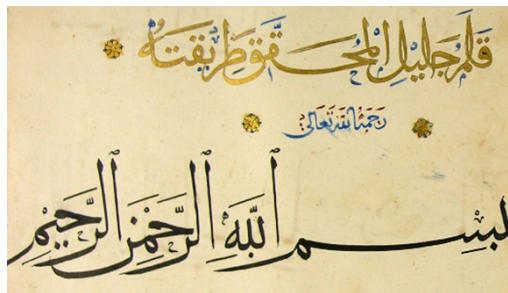 قلم جليل المحقق وطريقته
رحمة الله تعالى
بسم الله الرحمن الرحيم